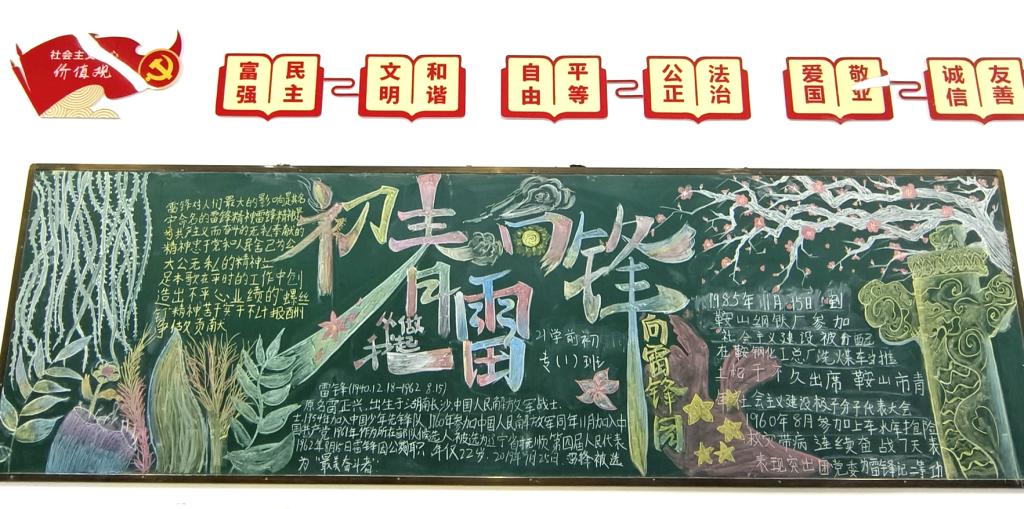 社会主
价值观
富强
民主
文明
和谐
自由
平等
公正
法治
爱国
敬业
诚信
友善
初春向雷锋
雷锋对人们最大的影响是
命名的雷锋精神雷锋精神是
共产主义而奋斗的无私奉献的
精神忠于党和人民舍己为公
大公无私的精神立
足本职在平时的工作中创
造出不平凡业绩的"螺丝
钉精神苦干实干不计报酬
争做贡献
从做起
21学前初
专(1)班
向雷锋同
雷锋(1940.12.18-1962.8.15)
原名雷正兴,出生于湖南长沙,中国人民解放军战士.
1954年加入中国少年先锋队 1960年参加中国人民解放军同年11月加入中
国共产党 1961年作为所在部队候选人被选为辽宁省抚顺市第四届人民代表
1962年8月15日雷锋因公殉职,年仅22岁.2019年9月25日,雷锋被选
为"最美奋斗者"
1985年11月15日 到
鞍山钢铁厂参加
社会主义建设被分配
在鞍钢化工总厂洗煤车间推
土机手不久出席鞍山市青
年社会主义建设积极分子代表大会
1960年8月参加上寺水库抢险
救灾带病连续奋战7天表
表现突出团党委为雷锋记二等功